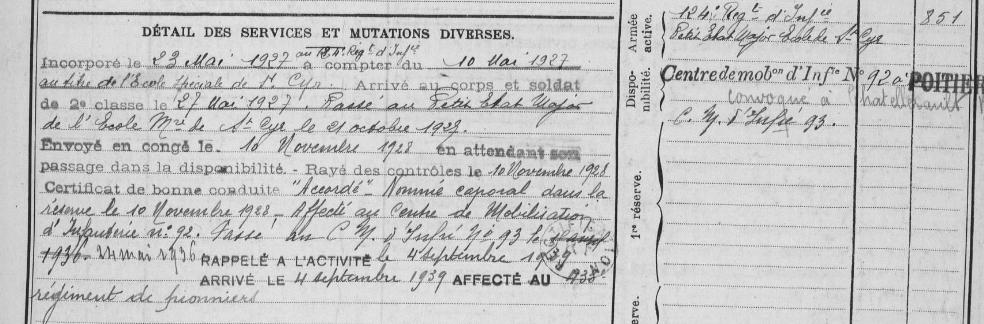 DÉTAIL DES SERVICES ET MUTATIONS DIVERSES.
au 124e Regt d'Infie
Incorporé le 23 Mai 1927 à compter du 10 Mai 1927
au titre de l'Ecole Spéciale de St Cyr. Arrivé au corps et soldat
de 2e classe le 27 Mai 1927. Passé au Petit Etat Major
de l'Ecole Mre de St Cyr le 21 octobre 1927.
Envoyé en congé le 10 Novembre 1928 en attendant son
passage dans la disponibilité. - Rayé des contrôles le 10 Novembre 1928
Certificat de bonne conduite "Accordé" Nommé caporal dans la
réserve le 10 Novembre 1928 - Affecté au Centre de Mobilisation
d'Infanterie n° 92. Passé au C. M. d'Infie N° 93 le
1936 24 mai 1936 RAPPELÉ A L'ACTIVITÉ le 4 septembre 1939
ARRIVÉ LE 4 septembre 1939 AFFECTÉ AU
régiment de pionniers
Armée active.
124e Regt d'Infie
Petit Etat Major Ecole de St Cyr
851
Dispo-
nibilité.
Centre de mobon d'Infie N° 92 a POITIER
convoqué à Chatellerault
C. M. d'Infie 93.
1re réserve.
erve.